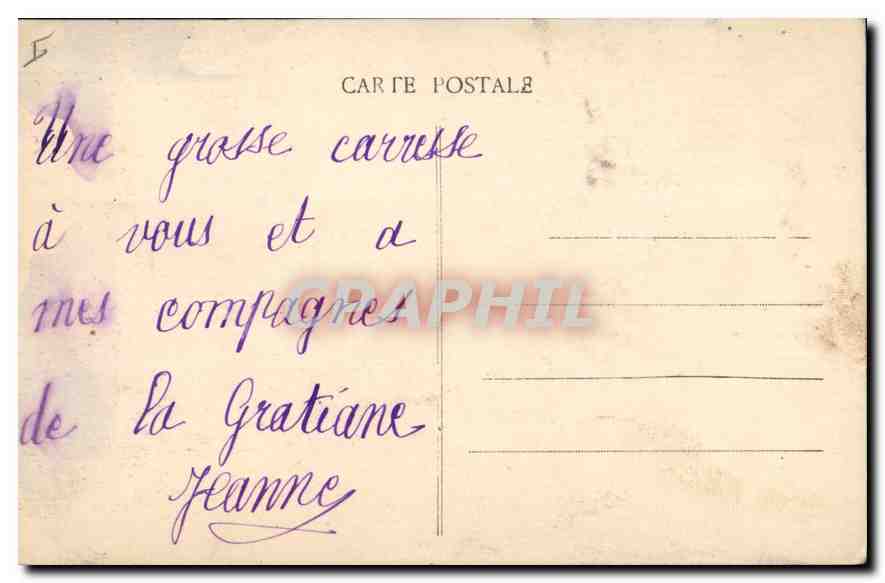 CARTE POSTALE
Une grosse carresse
à vous et a
mes compagnes
GRAPHIL
de la Gratiane
Jeanne